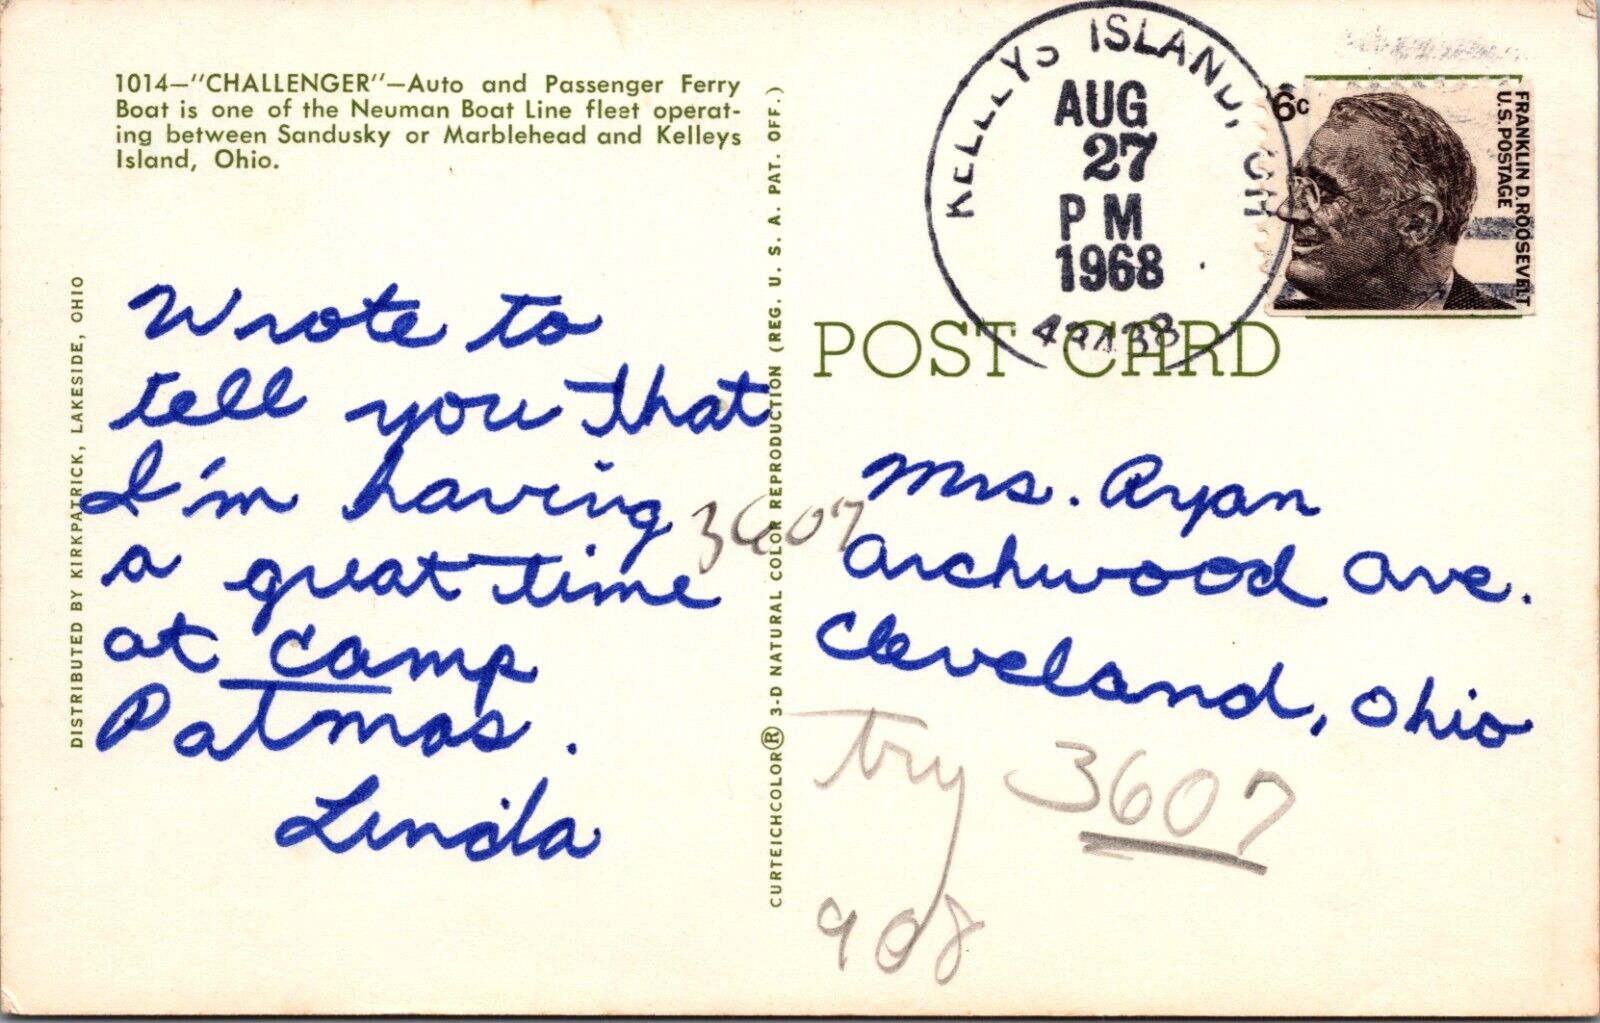 1014—"CHALLENGER"—Auto and Passenger Ferry
Boat is one of the Neuman Boat Line fleet operat-
ing between Sandusky or Marblehead and Kelleys
Island, Ohio.
DISTRIBUTED BY KIRKPATRICK, LAKESIDE, OHIO
Wrote to
tell you that
I'm having
a great time
at camp
Patmos.
Linda
CURTEICHCOLOR® 3-D NATURAL COLOR REPRODUCTION (REG. U. S. A. PAT. OFF.)
KELLEYS ISLAND, OH
AUG
27
PM
1968
6c
FRANKLIN D. ROOSEVELT
U.S. POSTAGE
POST CARD
3607
Mrs. Ryan
Archwood Ave.
Cleveland, Ohio
try 3607
908